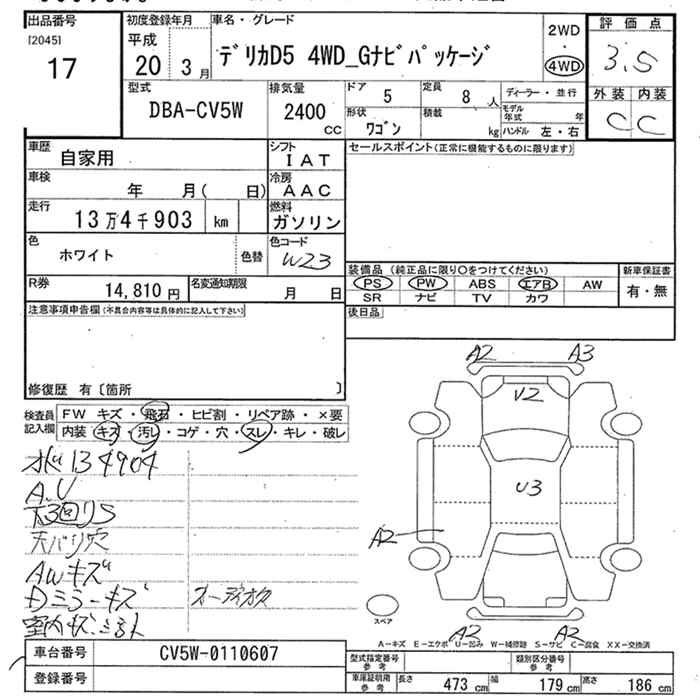 出品番号
[2045]
17
初度登録年月
平成
20 3月
車名・グレード
デリカD5 4WD_Gナビパッケージ
2WD
・
4WD
評価点
3.5
外装 内装
C C
型式
DBA-CV5W
排気量
2400
CC
ドア
5
定員
8 人
ディーラー・並行
形状
ワゴン
積載
kg
モデル年式 年
ハンドル 左・右
車歴
自家用
シフト
IAT
車検
年 月( 日)
冷房
AAC
走行
13万4千903 km
燃料
ガソリン
色
ホワイト
色替
色コード
W23
R券
14,810円
名変通知期限
月 日
セールスポイント(正常に機能するものに限ります)
装備品 (純正品に限り○をつけてください)
PS PW ABS エアB AW
SR ナビ TV カワ
新車保証書
有・無
後日品
注意事項申告欄(不具合内容等は具体的に記入して下さい)
修復歴 有〔箇所 〕
検査員記入欄
FW キズ・飛石・ヒビ割・リペア跡・×要
内装 キズ・汚し・コゲ・穴・スレ・キレ・破レ
134904
A.U
下3回りS
天バリ穴
AWキズ
Dミラーキズ
オーディオ欠
室内キズ
A2 A3
U2
U3
A2
A2 A2
スペア
A－キズ E－エクボ U－凹み W－補修跡 S－サビ C－腐食 XX－交換済
車台番号
CV5W-0110607
登録番号
型式指定番号
参考
類別区分番号
参考
車庫証明用
参考
長さ 473 cm 幅 179 cm 高さ 186 cm